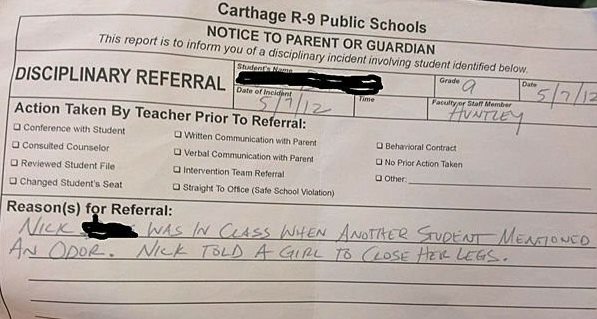 Carthage R-9 Public Schools
NOTICE TO PARENT OR GUARDIAN
This report is to inform you of a disciplinary incident involving student identified below.
DISCIPLINARY REFERRAL
Student's Name
Grade 9
Date 5/7/12
Date of Incident 5/7/12
Time
Faculty or Staff Member HUNTLEY
Action Taken By Teacher Prior To Referral:
☐ Conference with Student
☐ Consulted Counselor
☐ Reviewed Student File
☐ Changed Student's Seat
☐ Written Communication with Parent
☐ Verbal Communication with Parent
☐ Intervention Team Referral
☐ Straight To Office (Safe School Violation)
☐ Behavioral Contract
☐ No Prior Action Taken
☐ Other:
Reason(s) for Referral:
NICK WAS IN CLASS WHEN ANOTHER STUDENT MENTIONED
AN ODOR. NICK TOLD A GIRL TO CLOSE HER LEGS.